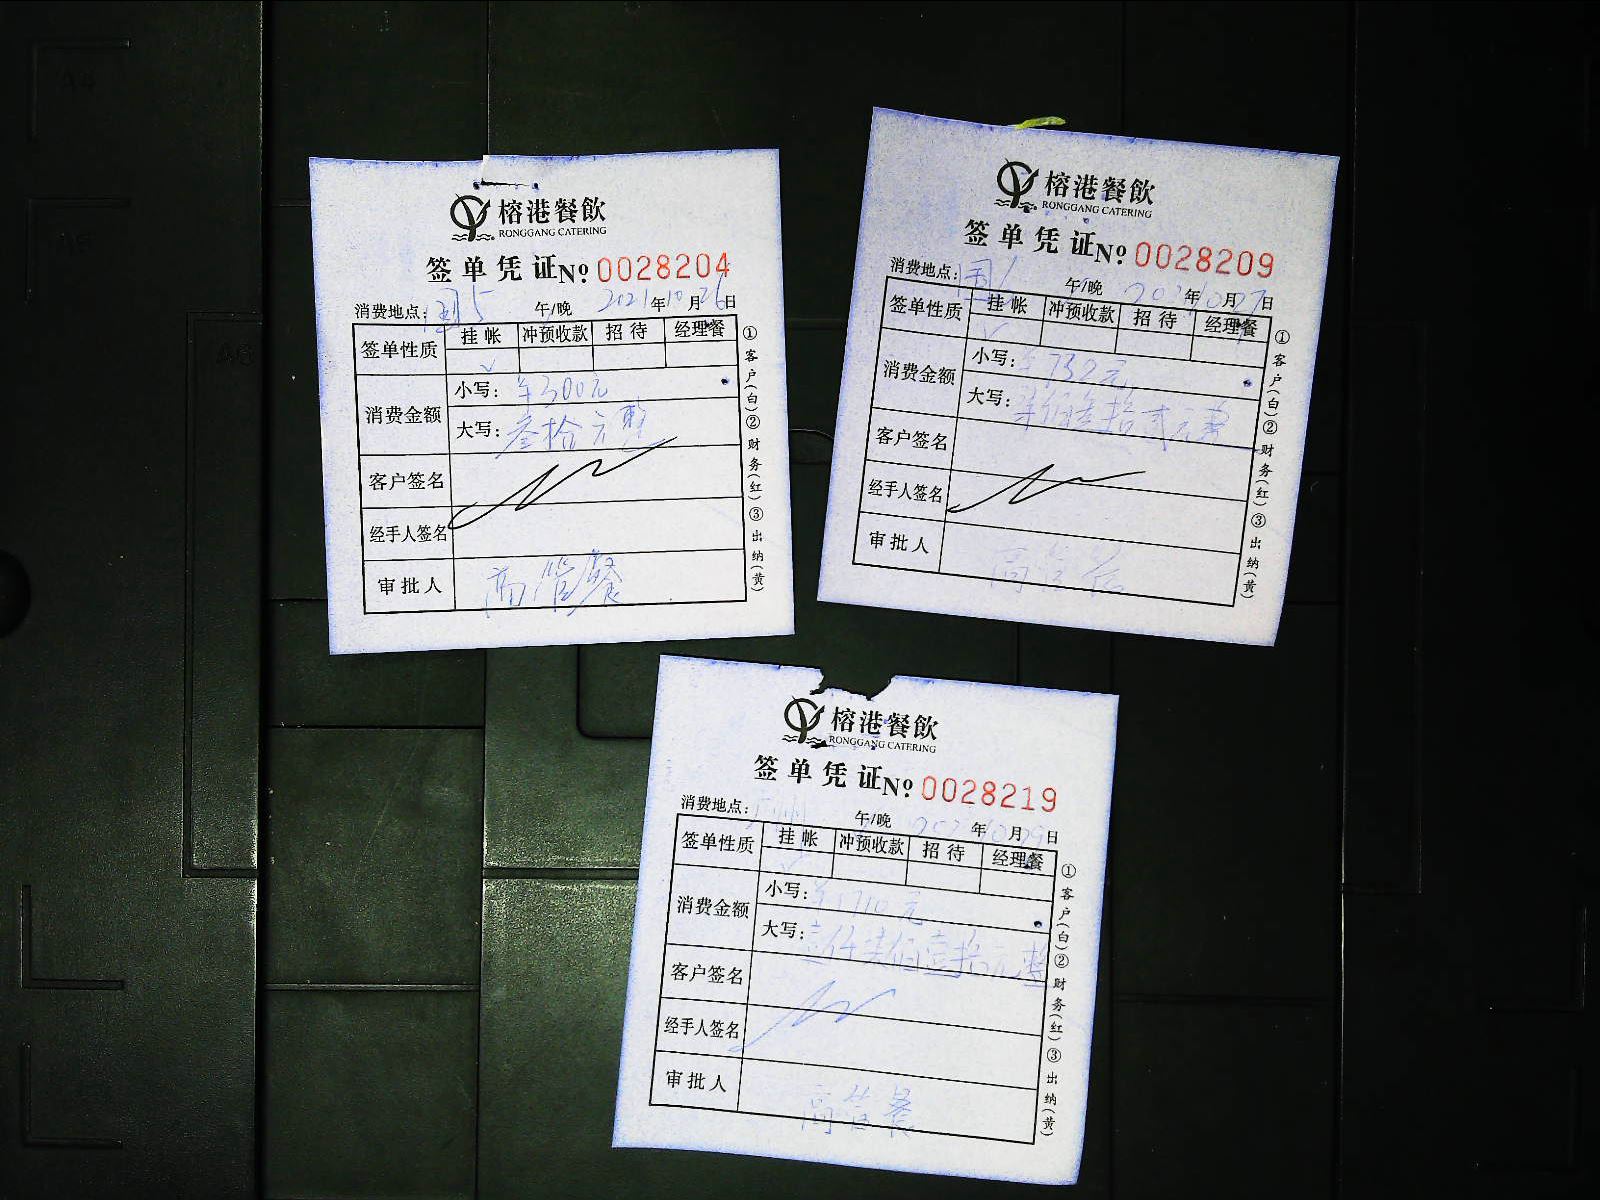 榕港餐飲
RONGGANG CATERING
签单凭证№ 0028204
消费地点: 国5 午/晚 2021年10月26日
签单性质 挂帐 冲预收款 招待 经理餐
✓
消费金额 小写: ¥300元
大写: 叁拾元整
客户签名
经手人签名
审批人 高管餐
①客户(白)②财务(红)③出纳(黄)
榕港餐飲
RONGGANG CATERING
签单凭证№ 0028209
消费地点: 国 午/晚 2021年10月27日
签单性质 挂帐 冲预收款 招待 经理餐
✓
消费金额 小写: ¥732元
大写: 柒佰叁拾贰元整
客户签名
经手人签名
审批人 高管餐
①客户(白)②财务(红)③出纳(黄)
榕港餐飲
RONGGANG CATERING
签单凭证№ 0028219
消费地点: 午/晚 2021年10月29日
签单性质 挂帐 冲预收款 招待 经理餐
✓
消费金额 小写: ¥1710元
大写: 壹仟柒佰壹拾元整
客户签名
经手人签名
审批人 高管餐
①客户(白)②财务(红)③出纳(黄)